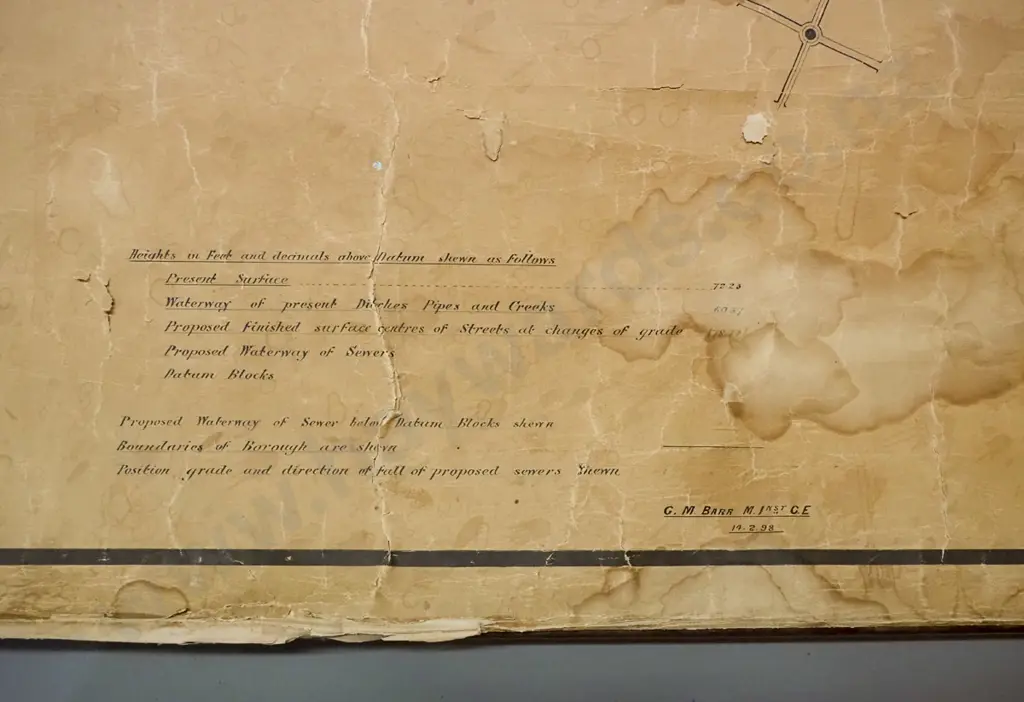 Heights in Feet and decimals above Datum shewn as Follows
Present Surface 72.23
Waterway of present Ditches Pipes and Creeks
Proposed Finished surface centres of Streets at changes of grade
Proposed Waterway of Sewers
Datum Blocks
Proposed Waterway of Sewer below Datum Blocks shewn
Boundaries of Borough are shewn
Position grade and direction of fall of proposed sewers Shewn
G. M. BARR M. INST C.E
14.2.98